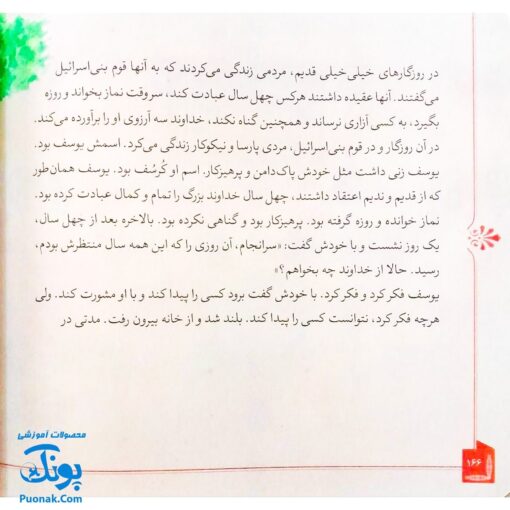 در روزگارهای خیلی‌خیلی قدیم، مردمی زندگی می‌کردند که به آنها قوم بنی‌اسرائیل
می‌گفتند. آنها عقیده داشتند هرکس چهل سال عبادت کند، سروقت نماز بخواند و روزه
بگیرد، به کسی آزاری نرساند و همچنین گناه نکند، خداوند سه آرزوی او را برآورده می‌کند.
در آن روزگار و در قوم بنی‌اسرائیل، مردی پارسا و نیکوکار زندگی می‌کرد. اسمش یوسف بود.
یوسف زنی داشت مثل خودش پاک‌دامن و پرهیزکار. اسم او کُرسُف بود. یوسف همان‌طور
که از قدیم و ندیم اعتقاد داشتند، چهل سال خداوند بزرگ را تمام و کمال عبادت کرده بود.
نماز خوانده و روزه گرفته بود. پرهیزکار بود و گناهی نکرده بود. بالاخره بعد از چهل سال،
یک روز نشست و با خودش گفت: «سرانجام، آن روزی را که این همه سال منتظرش بودم،
رسید. حالا از خداوند چه بخواهم؟»
یوسف فکر کرد و فکر کرد. با خودش گفت برود کسی را پیدا کند و با او مشورت کند. ولی
هرچه فکر کرد، نتوانست کسی را پیدا کند. بلند شد و از خانه بیرون رفت. مدتی در
۱۶۶
محصولات آموزشی
پونک
Puonak.Com